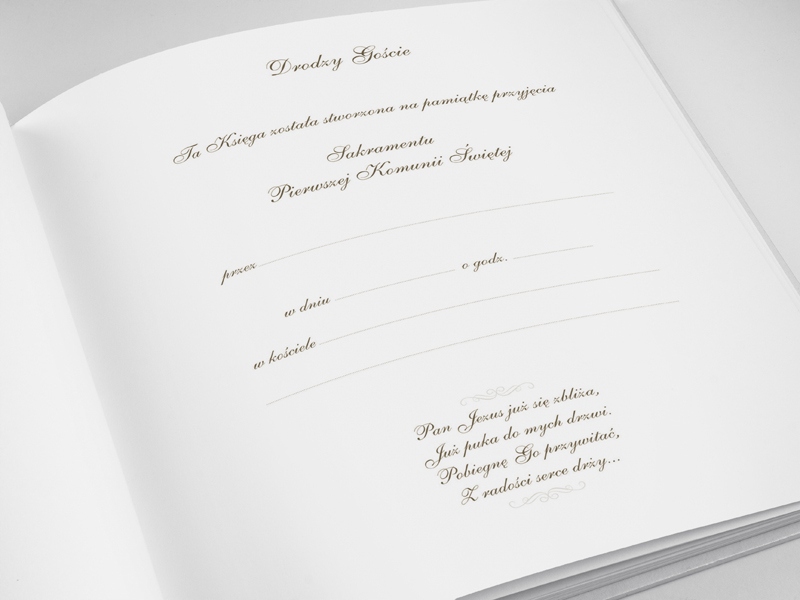 Drodzy Goście
Ta Księga została stworzona na pamiątkę przyjęcia
Sakramentu
Pierwszej Komunii Świętej
przez
w dniu o godz.
w kościele
Pan Jezus już się zbliża,
Już puka do mych drzwi.
Pobiegnę Go przywitać,
Z radości serce drży...